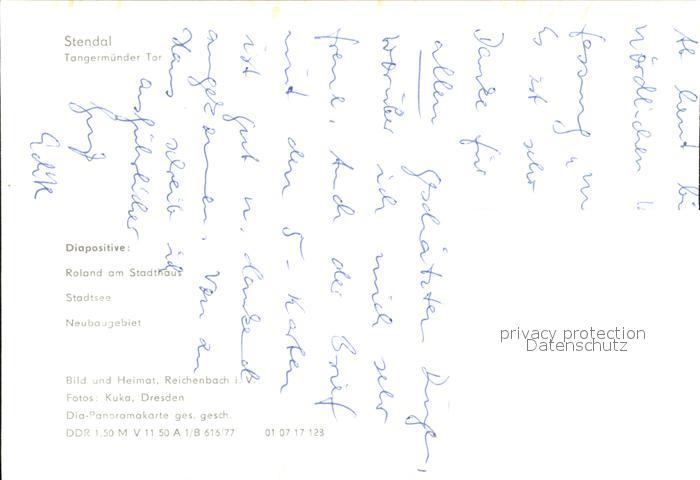 Stendal
Tangermünder Tor
Diapositive:
Roland am Stadthaus
Stadtsee
Neubaugebiet
Bild und Heimat, Reichenbach i. V.
Fotos: Kuka, Dresden
Dia-Panoramakarte ges. gesch.
DDR 1,50 M V 11 50 A 1/B 616/77 01 07 17 123
privacy protection
Datenschutz
Ab heut bi
nördlichen
fassung
Es ist sehr
Danke für
allen geschätzten Dinge,
worüber ich mich sehr
freue. Auch der Brief
mit den 5 - Karten
ist gut u. dankend
angekommen. Von zu
Haus schreib ich
ausführlicher